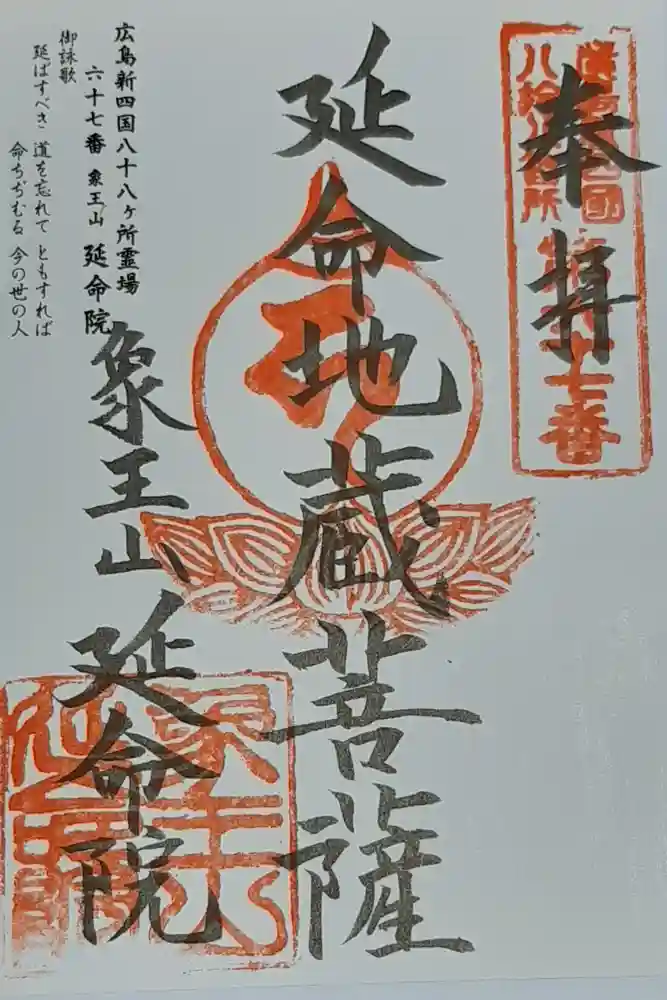 奉拝
延命地蔵菩薩
象王山
延命院
広島新四国八十八ヶ所霊場
六十七番 象王山 延命院
御詠歌
延ばすべき 道を忘れて ともすれば
命ちぢむる 今の世の人